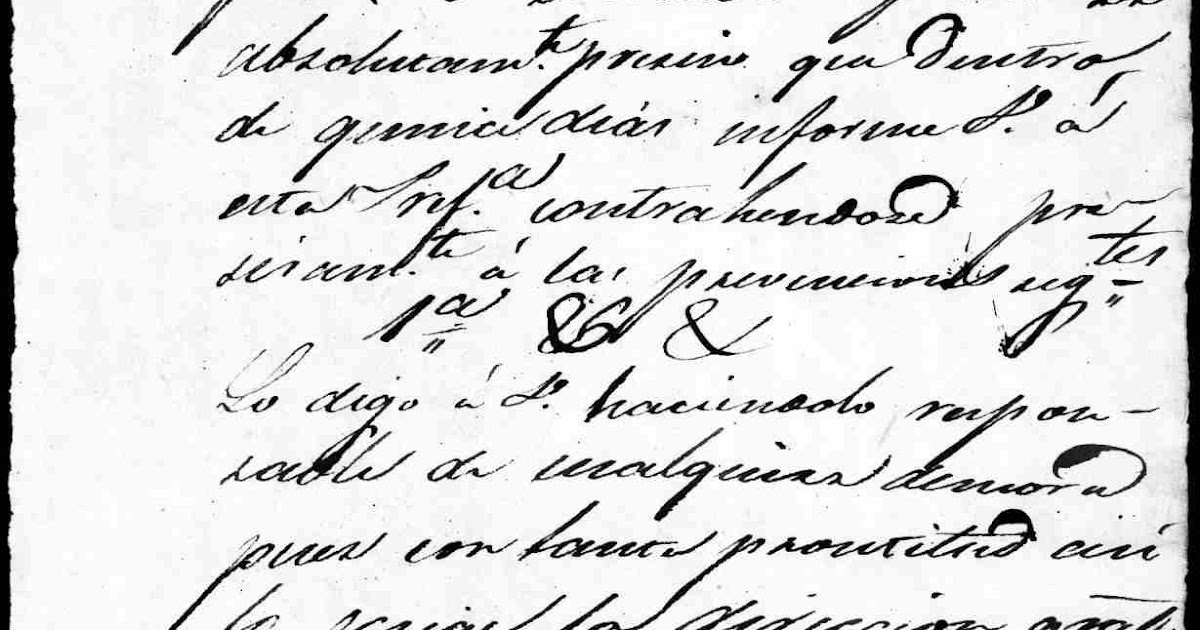 absolutam.te preciso que dentro
de quince dias informe V. á
esta Pref.a contrahendose pre-
sisam.te á las prevenciones sig.tes
1.a && &
Lo digo á V. haciendolo respon-
sable de cualquiera demora
pues con tanta prontitud asi
lo la direccion